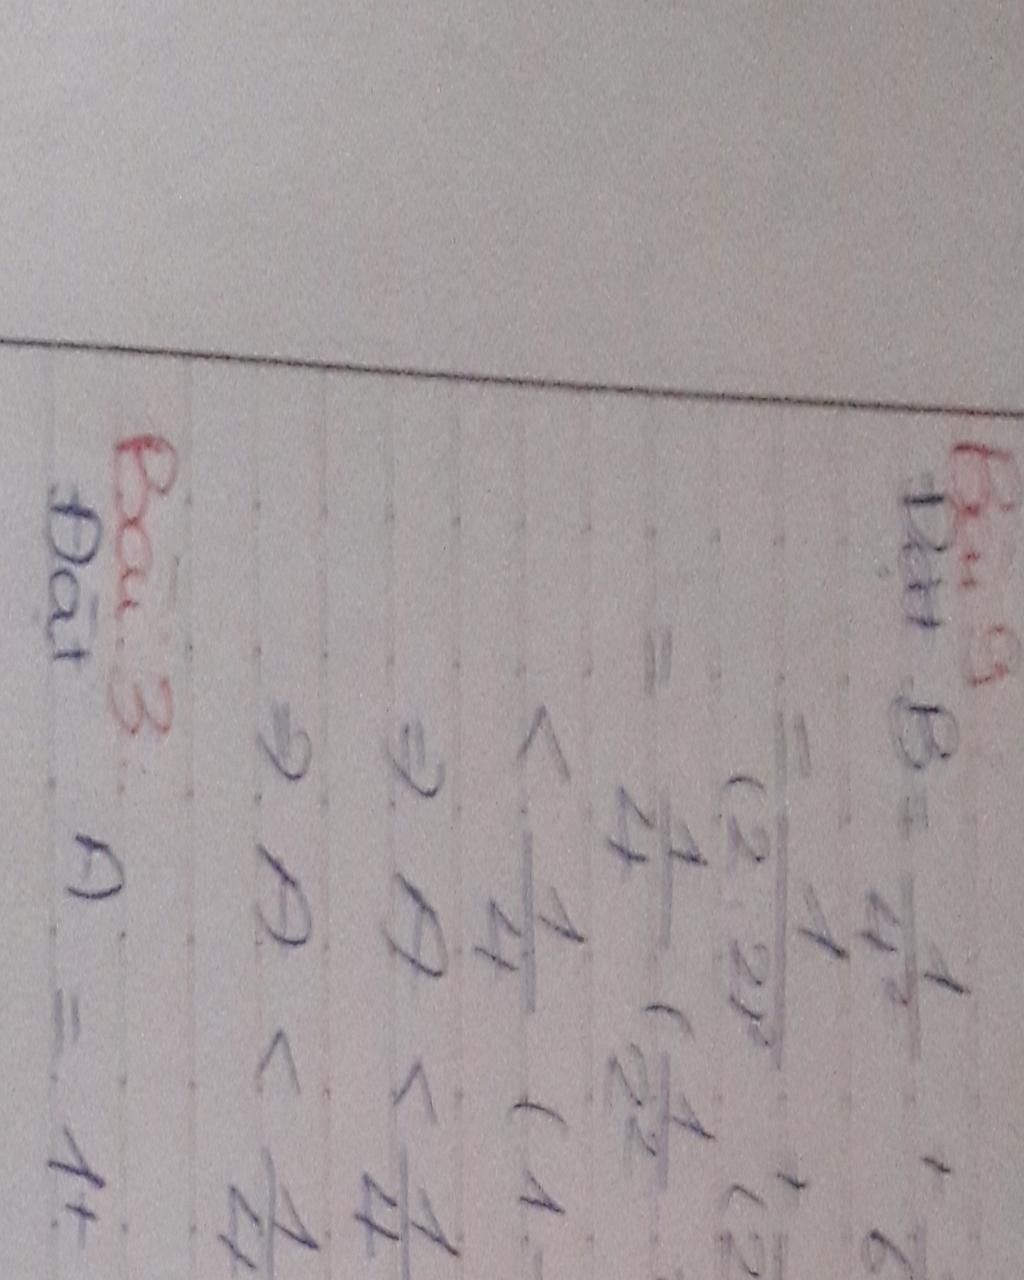 Bài 9
Đặt B = 1/4² + 1/6
= 1/(2.2)² + 1/(2
= 1/4 (1/2²
< 1/4 (1 -
⇒ A < 1/4
⇒ A < 1/4
Bài 3
Đặt A = 1 +